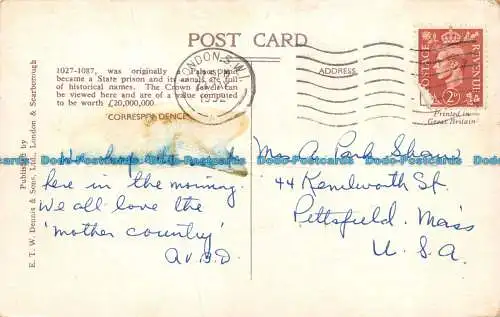 POST CARD
1027-1087, was originally a Palace and
became a State prison and its annals are full
of historical names. The Crown Jewels can
be viewed here and are of a value computed
to be worth £20,000,000.
CORRESPONDENCE
ADDRESS
LONDON S.W.1
1952
POSTAGE
REVENUE
2D
Printed in
Great Britain
Published by
E. T. W. Dennis & Sons, Ltd., London & Scarborough
here in the morning.
We all love the
"mother country"
Mrs A Park Shaw
44 Kenilworth St.
Pittsfield. Mass
U. S. A.